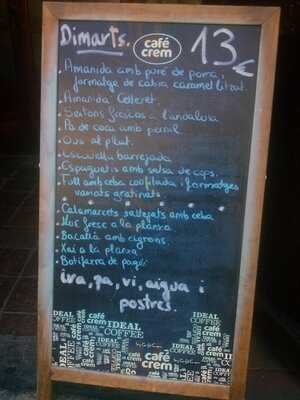 Dimarts.
café
crem
13 €
. Amanida amb puré de poma i
formatge de cabra caramelitzat.
. Amanida Celleret.
. Seitons frescos a l'andalusa
. Pa de coca amb pernil
. Ous al plat.
. Escudella barrejada
. Espaguetis amb salsa de ceps.
. Full amb ceba confitada i formatges
variats gratinats
. Calamarcets saltejats amb ceba
. Lluç fresc a la planxa
. Bacallà amb cigrons.
. Xai a la planxa
. Botifarra de pagès
1ra, pa, vi, aigua i
postres.
IDEAL
COFFEE
café
crem
IDEAL
COFFEE
café
crem